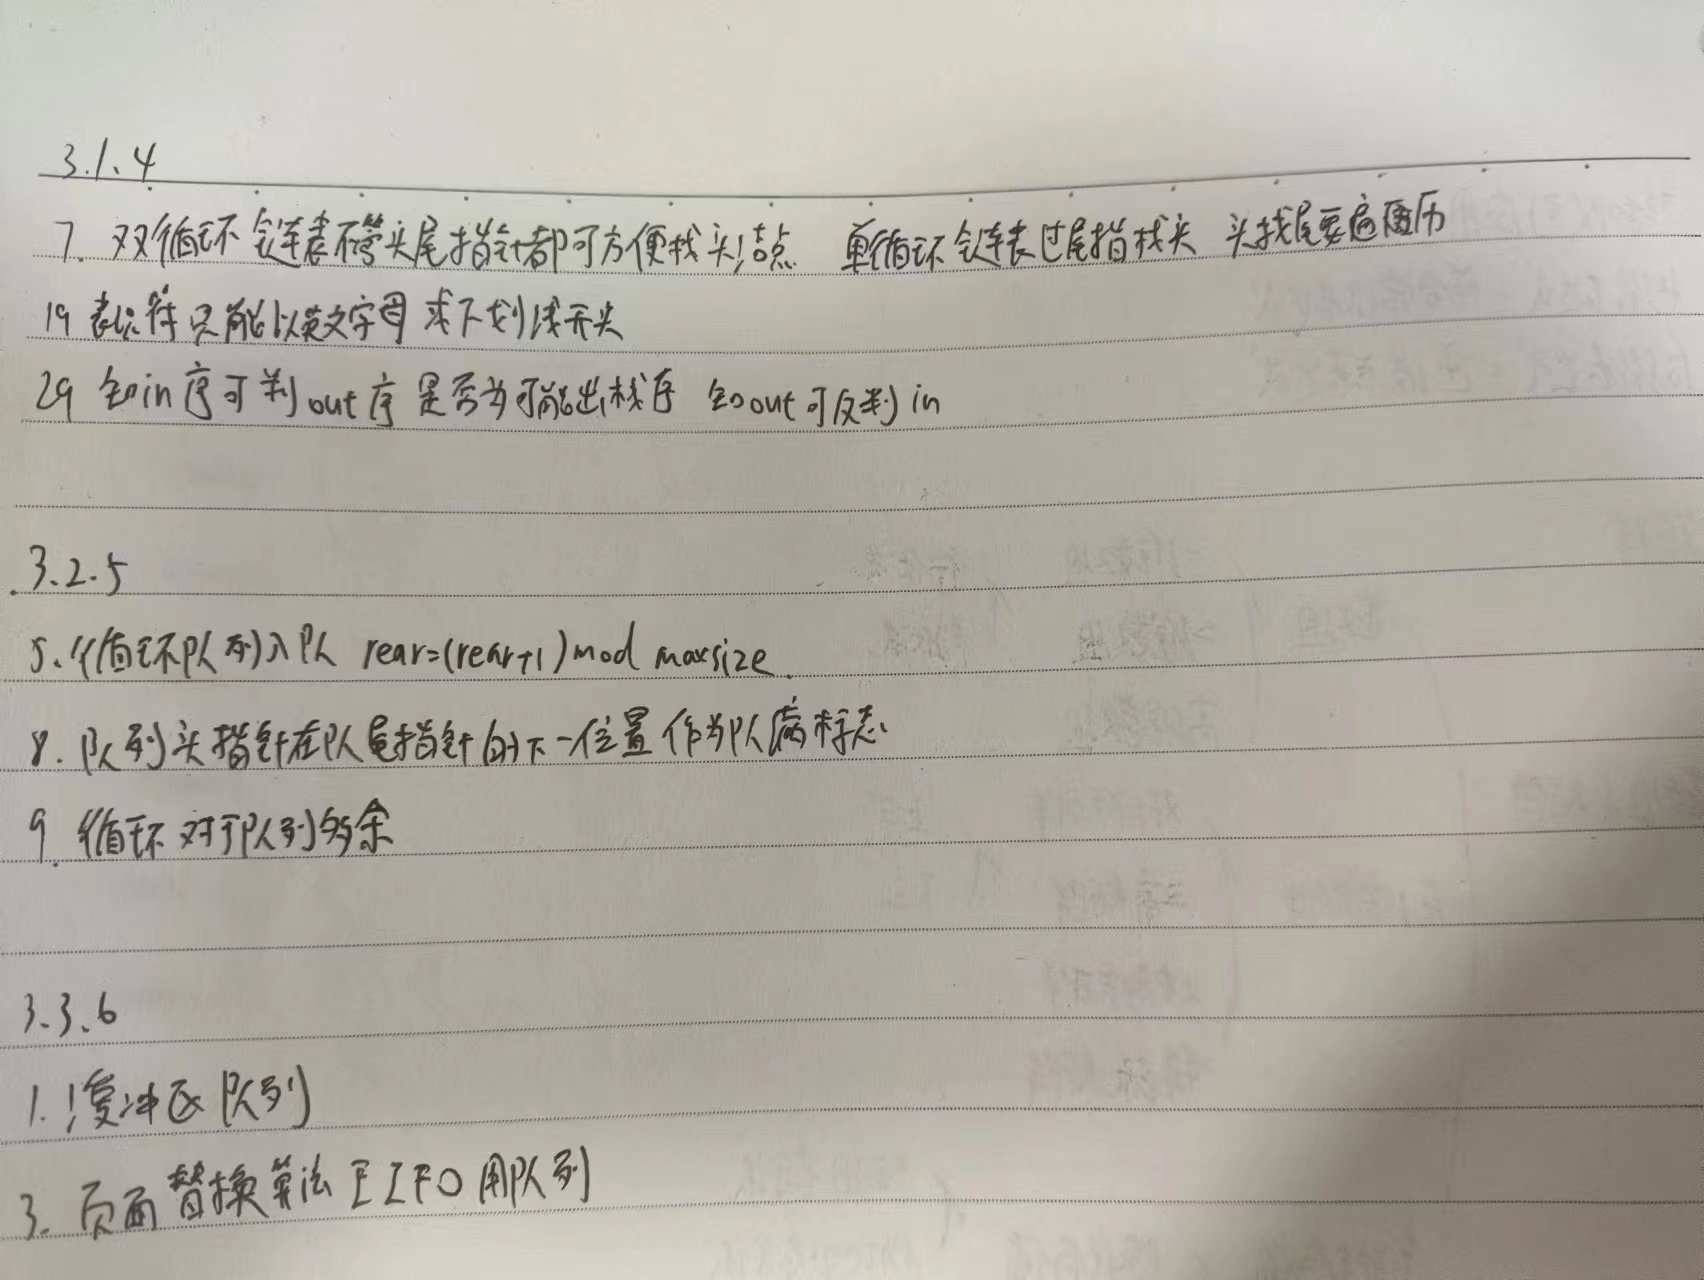 3.1.4
7. 双循环链表不管头尾指针都可方便找头结点 单循环链表过尾指找头 头找尾要遍历
19 表识符只能以英文字母或下划线开头
29 知in序可判out序是否为可能出栈序 知out可反判in
3.2.5
5. 循环队列入队 rear=(rear+1)mod maxsize.
8. 队列头指针在队尾指针的下一位置作为队满标志
9. 循环对于队列多余
3.3.6
1. 缓冲区队列
3. 页面替换算法FIFO用队列